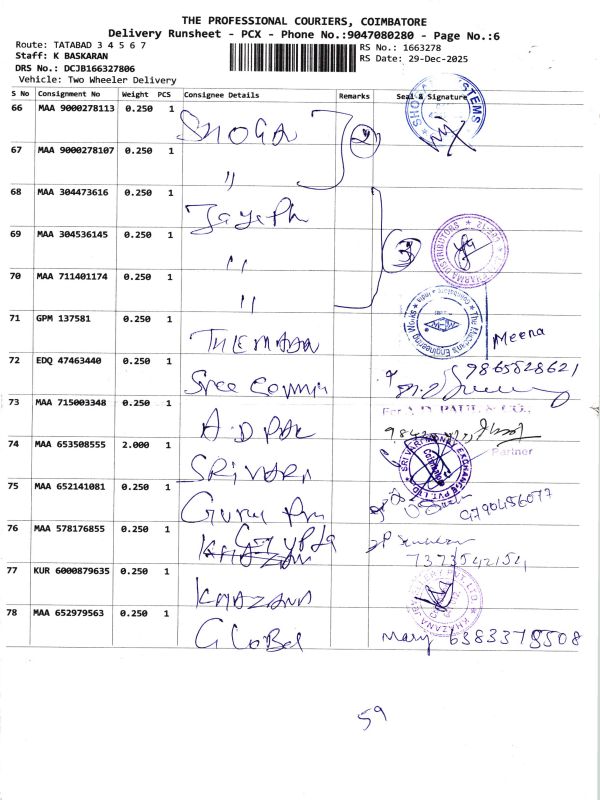 THE PROFESSIONAL COURIERS, COIMBATORE
Delivery Runsheet - PCX - Phone No.:9047080280 - Page No.:6
Route: TATABAD 3 4 5 6 7
Staff: K BASKARAN
DRS No.: DCJB166327806
Vehicle: Two Wheeler Delivery
RS No.: 1663278
RS Date: 29-Dec-2025
S No Consignment No Weight PCS Consignee Details Remarks Seal & Signature
66 MAA 9000278113 0.250 1 SHOGA 2
67 MAA 9000278107 0.250 1 "
68 MAA 304473616 0.250 1
69 MAA 304536145 0.250 1 " 3
70 MAA 711401174 0.250 1 "
71 GPM 137581 0.250 1 Meena
72 EDQ 47463440 0.250 1 Sree 9865528621
73 MAA 715003348 0.250 1 A.D For A.D. PATIL & CO.,
Partner
74 MAA 653508555 2.000 1 SRIVARI SRI VARI MONEY EXCHANGE PVT. LTD. Coimbatore
75 MAA 652141081 0.250 1 Guru 9790456077
76 MAA 578176855 0.250 1 Gupta 7373542154
77 KUR 6000879635 0.250 1 KHAZANA
78 MAA 652979563 0.250 1 Global Mary 6383379508
59